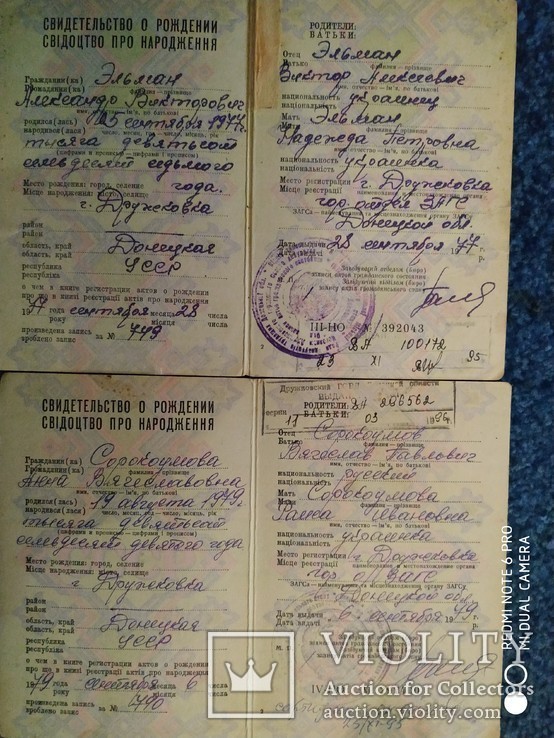 СВИДЕТЕЛЬСТВО О РОЖДЕНИИ
СВІДОЦТВО ПРО НАРОДЖЕННЯ
Гражданин(ка) Эльман
Громадянин(ка)
фамилия — прізвище
Александр Викторович
имя, отчество — ім'я, по батькові
родился(лась) 25 сентября 1977 г.
народився(лася)
число, месяц, год — число, місяць, рік
тысяча девятьсот
цифрами и прописью — цифрами і прописом
семьдесят седьмого
года.
Место рождения: город, селение
Місце народження: місто, селище
г. Дружковка
район
район
область, край Донецкая
область, край
республика УССР
республіка
о чем в книге регистрации актов о рождении
про що в книзі реєстрації актів про народження
1977 года сентября месяца 28 числа
року місяця числа
произведена запись за № 749
зроблено запис
РОДИТЕЛИ:
БАТЬКИ:
Отец Эльман
Батько
фамилия — прізвище
Виктор Алексеевич
имя, отчество — ім'я, по батькові
национальность украинец
національність
Мать Эльман
Мати
фамилия — прізвище
Надежда Петровна
имя, отчество — ім'я, по батькові
национальность украинка
національність
Место регистрации г. Дружковка
Місце реєстрації
гор отдел ЗАГС
ЗАГСа — найменування та місцезнаходження органу ЗАГСу
Донецкой обл.
Дата выдачи 28 сентября 1977 г.
Дата видачі р.
М. П.
III-НО № 392043
2
23 XI 95
СВИДЕТЕЛЬСТВО О РОЖДЕНИИ
СВІДОЦТВО ПРО НАРОДЖЕННЯ
Гражданин(ка) Сорокоумова
Громадянин(ка)
фамилия — прізвище
Анна Вячеславовна
имя, отчество — ім'я, по батькові
родился(лась) 19 августа 1979 г.
народився(лася)
число, месяц, год — число, місяць, рік
тысяча девятьсот
цифрами и прописью — цифрами і прописом
семьдесят девятого года
Место рождения: город, селение
Місце народження: місто, селище
г Дружковка
район
район
область, край Донецкая
область, край
республика УССР
республіка
о чем в книге регистрации актов о рождении
про що в книзі реєстрації актів про народження
1979 года сентября месяца 6 числа
року місяця числа
произведена запись за № 790
зроблено запис
РОДИТЕЛИ:
БАТЬКИ:
17 03 1996 г.
Отец Сорокоумов
Батько
фамилия — прізвище
Вячеслав Павлович
имя, отчество — ім'я, по батькові
национальность русский
національність
Мать Сорокоумова
Мати
фамилия — прізвище
Раиса Ивановна
имя, отчество — ім'я, по батькові
национальность украинка
національність
Место регистрации г Дружковка
Місце реєстрації
гор о ЗАГС
Донецкой обл
Дата выдачи 6 сентября 1979 г.
Дата видачі р.
REDMI NOTE 6 PRO
MI DUAL CAMERA
VIOLITY
Auction for Collectors
auction.violity.com